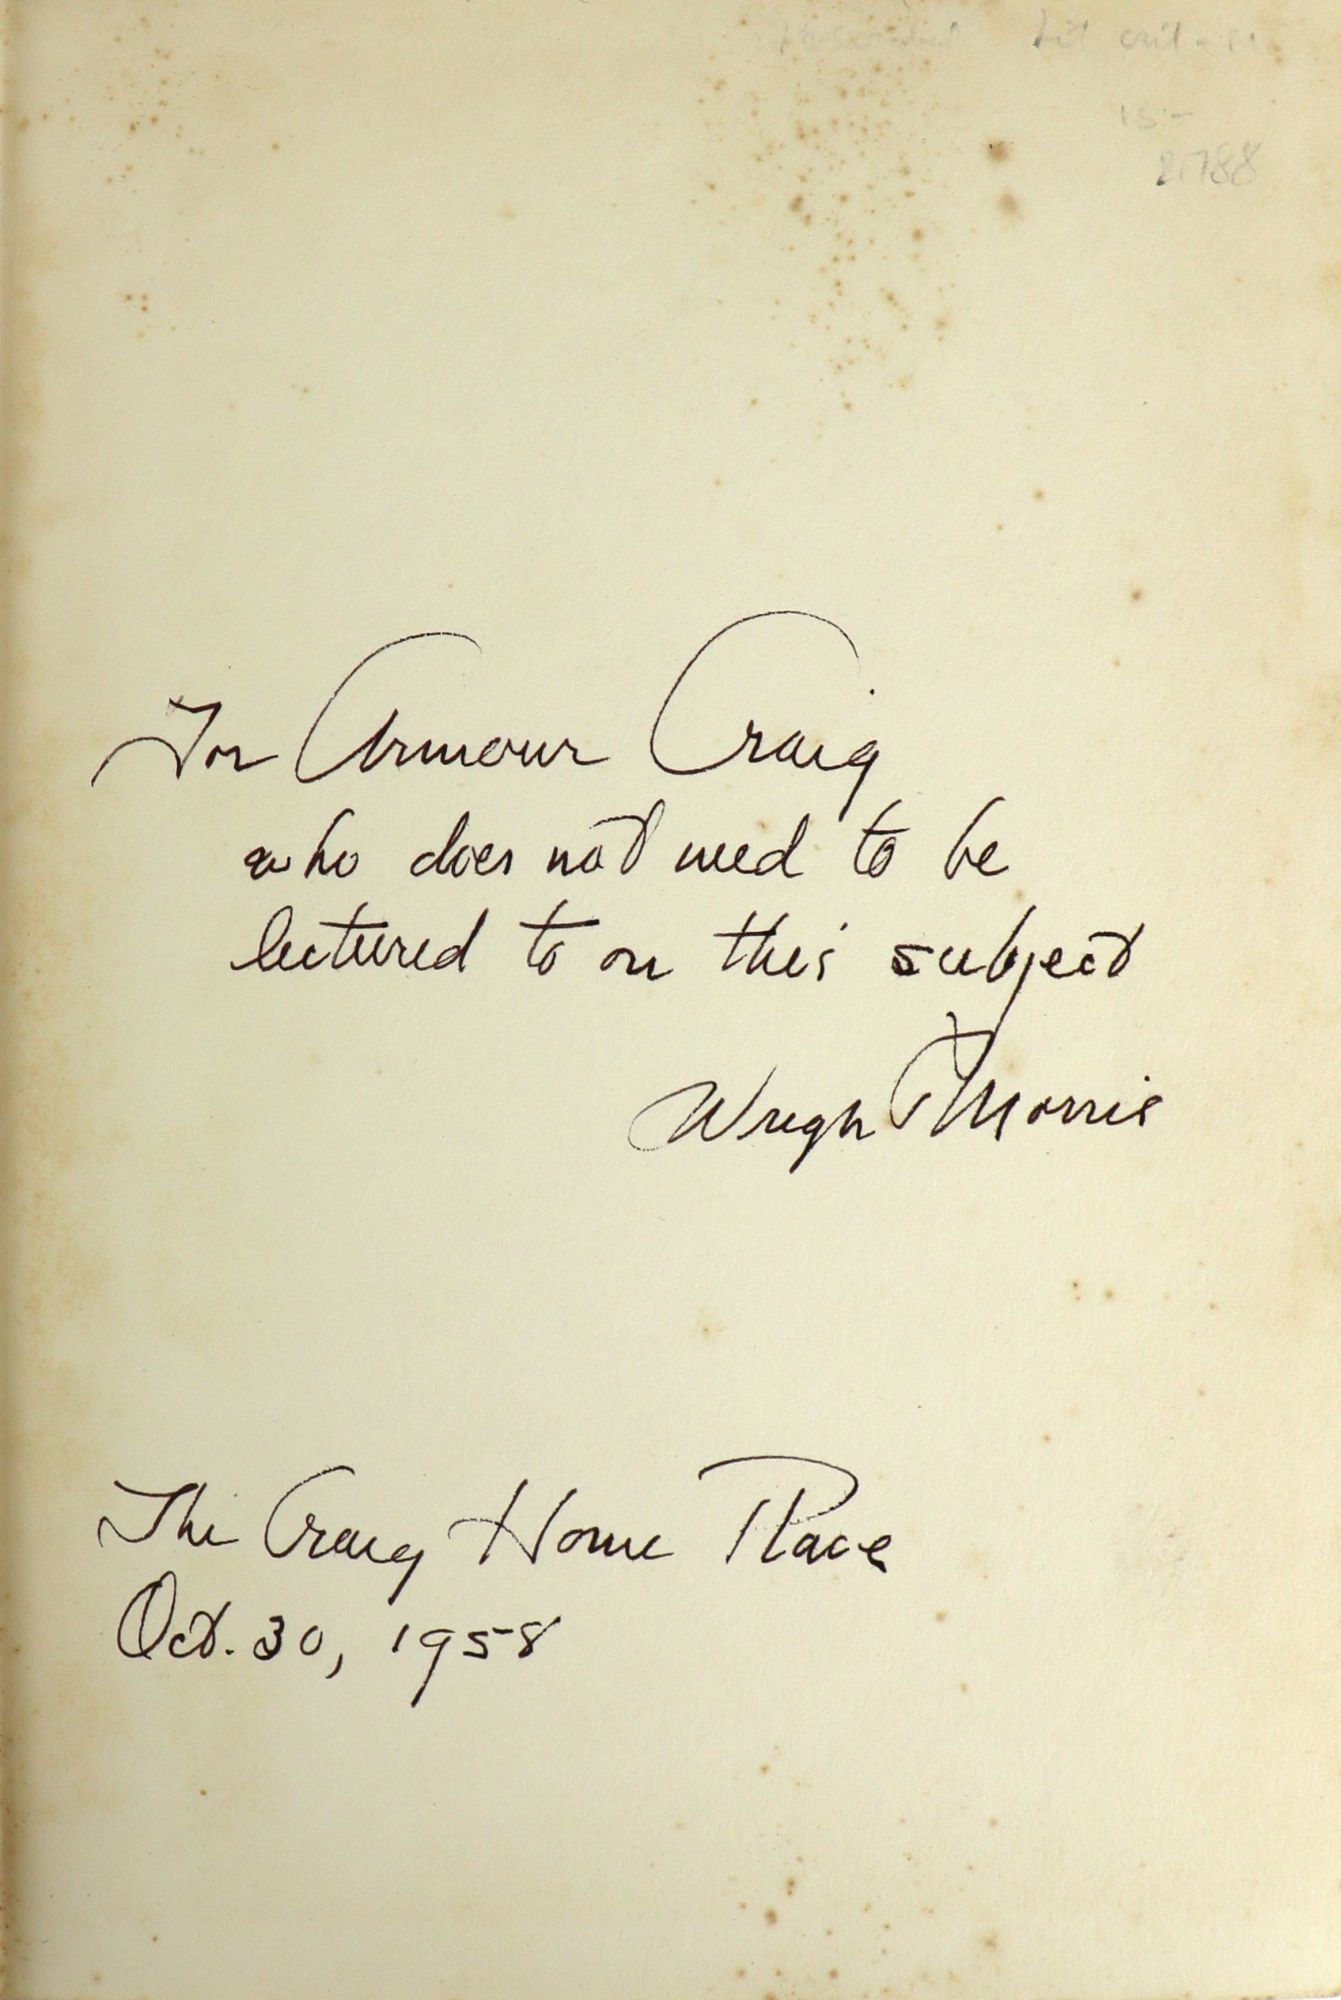 Lit crit
15-
For Armour Craig
who does not need to be
lectured to on this subject
Wright Morris
The Craig Home Place
Oct. 30, 1958